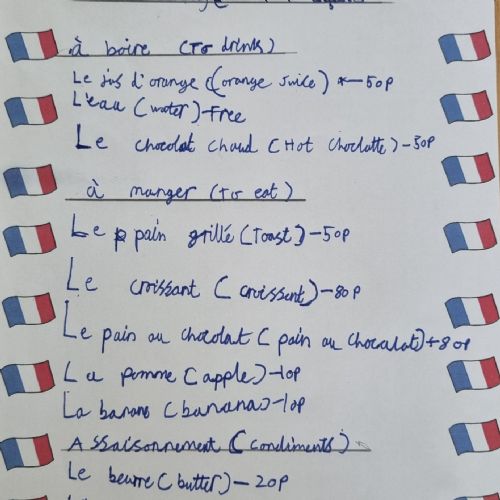 à boire (To drink)
Le jus d'orange (orange juice) - 50p
L'eau (water) - Free
Le chocolat chaud (Hot choclatte) - 30p
à manger (To eat)
Le pain grillé (Toast) - 50p
Le croissant (croissant) - 80p
Le pain au chocolat (pain au chocalat) - 80p
La pomme (apple) - 10p
La banans (banana) - 10p
Assaisonnement (condiments)
Le beurre (butter) - 20p